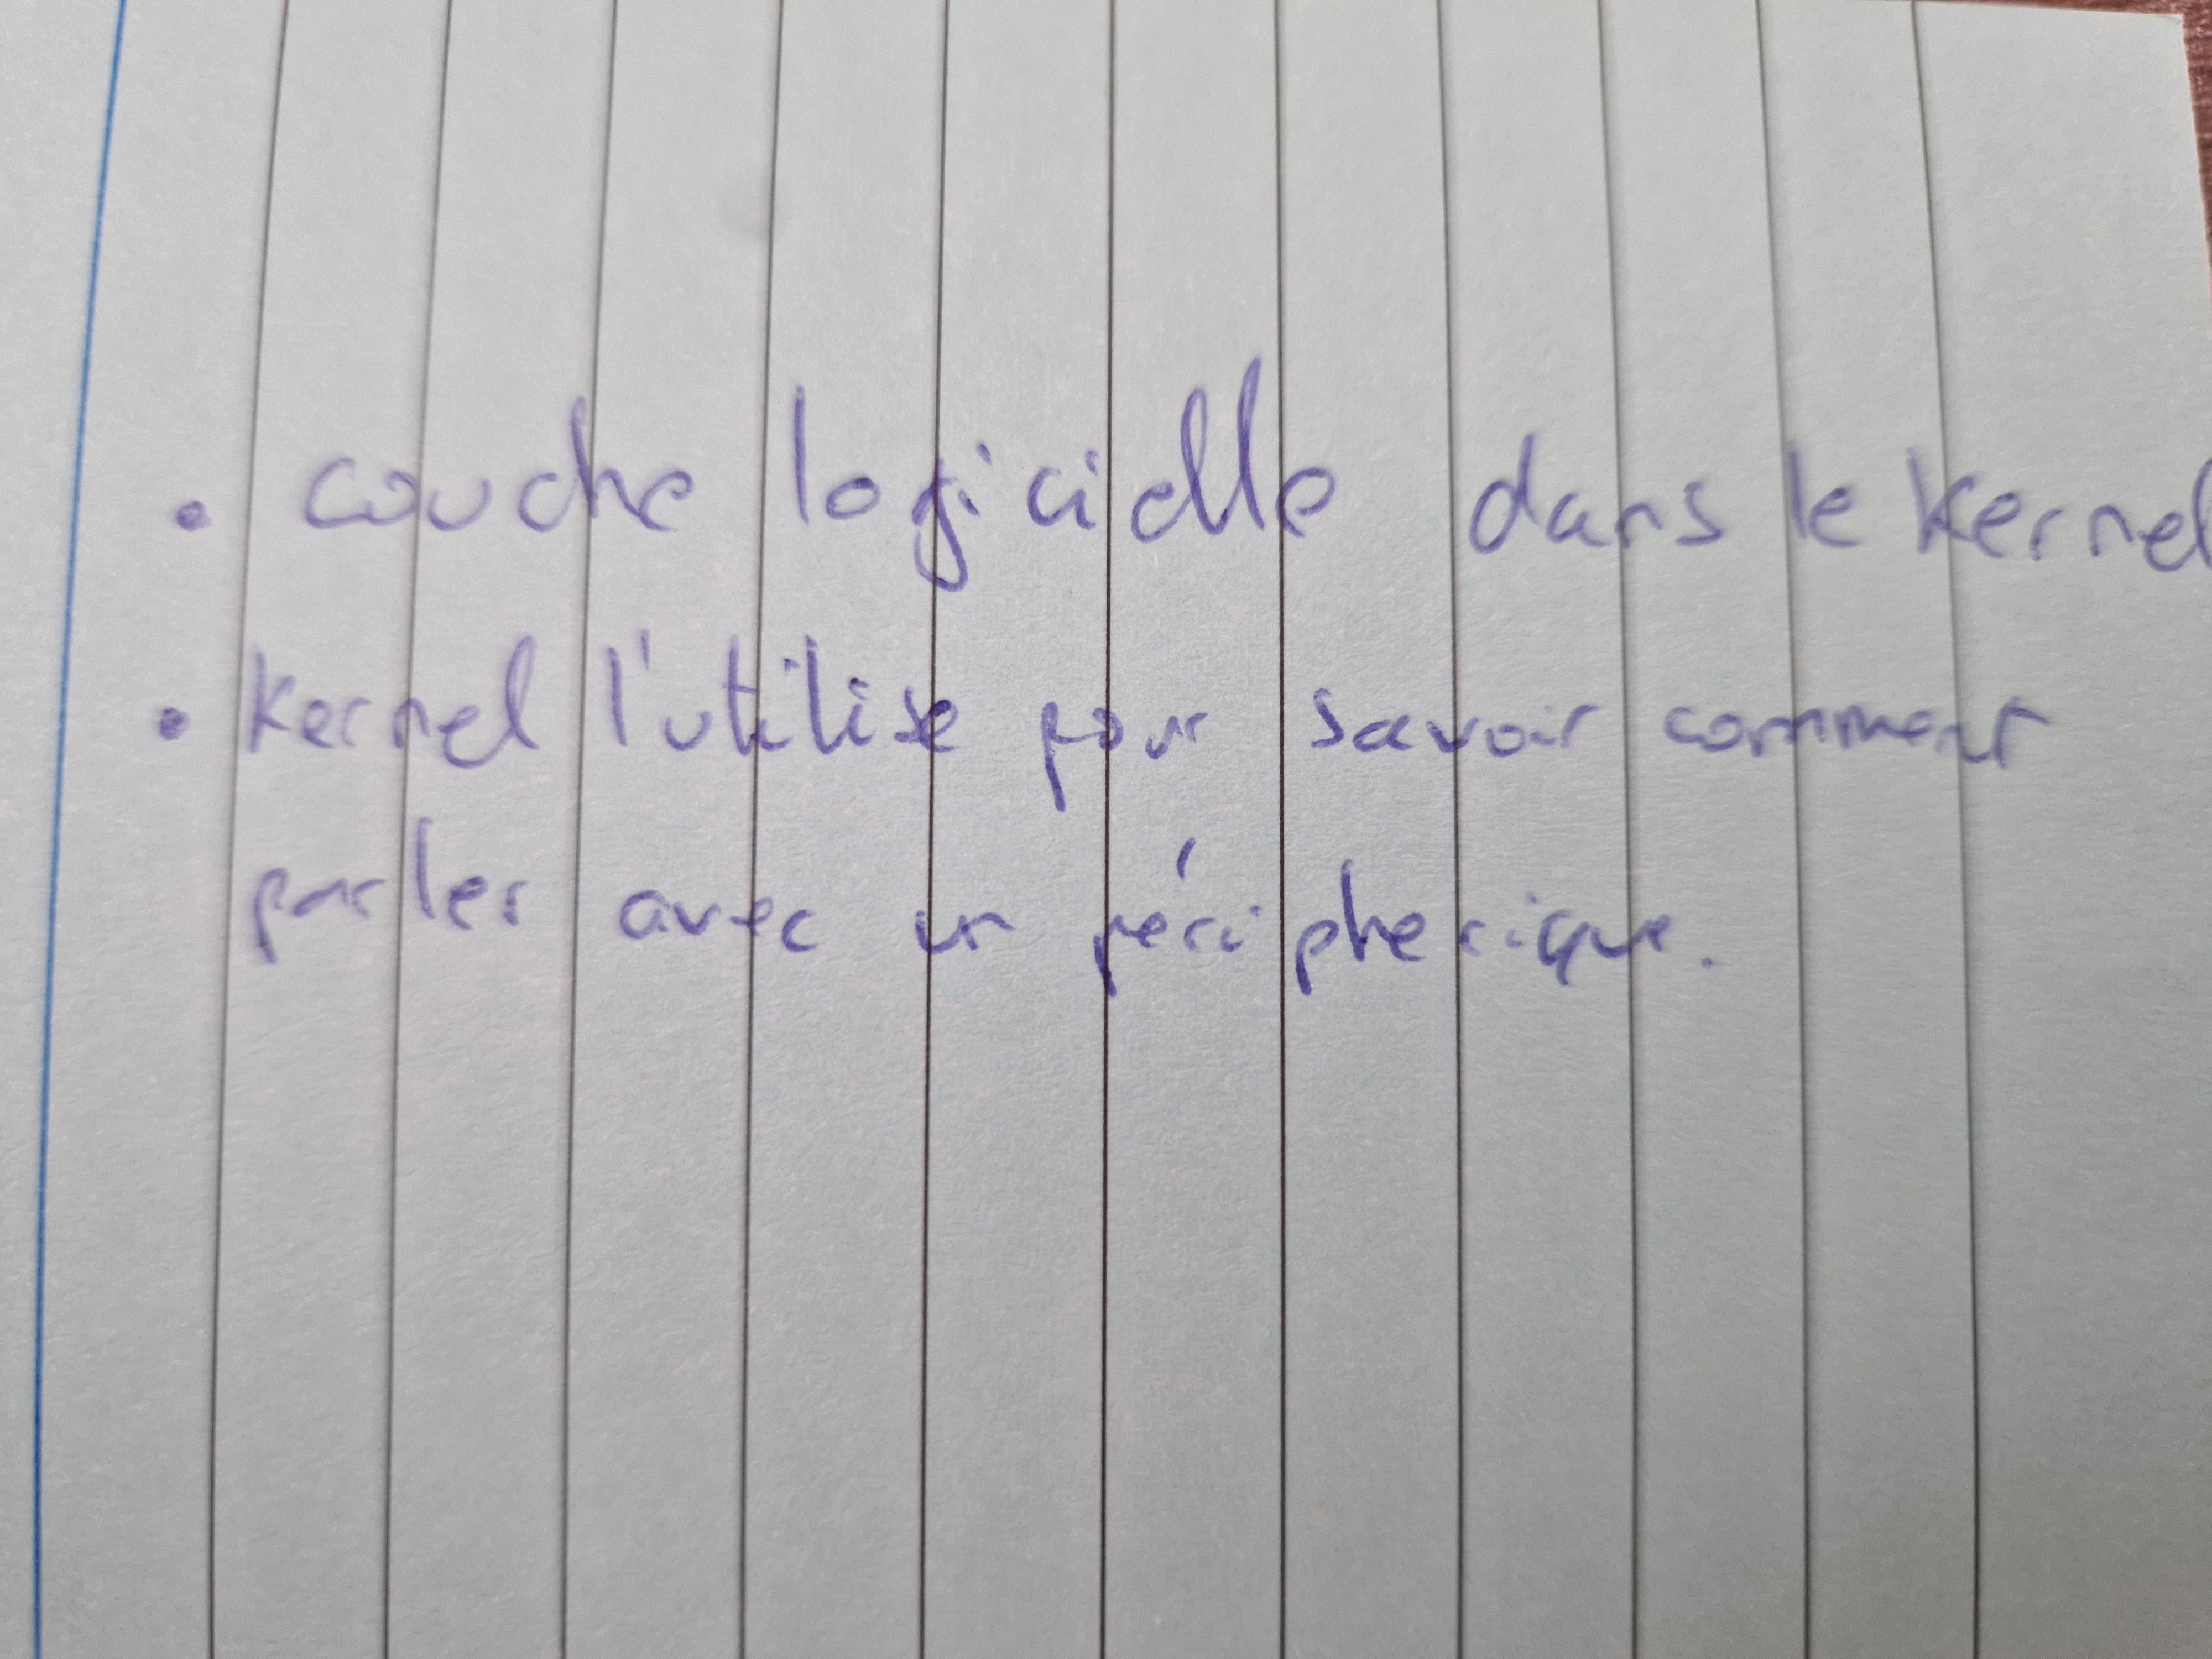 • couche logicielle dans le kernel
• kernel l'utilise pour savoir comment
parler avec un péripherique.